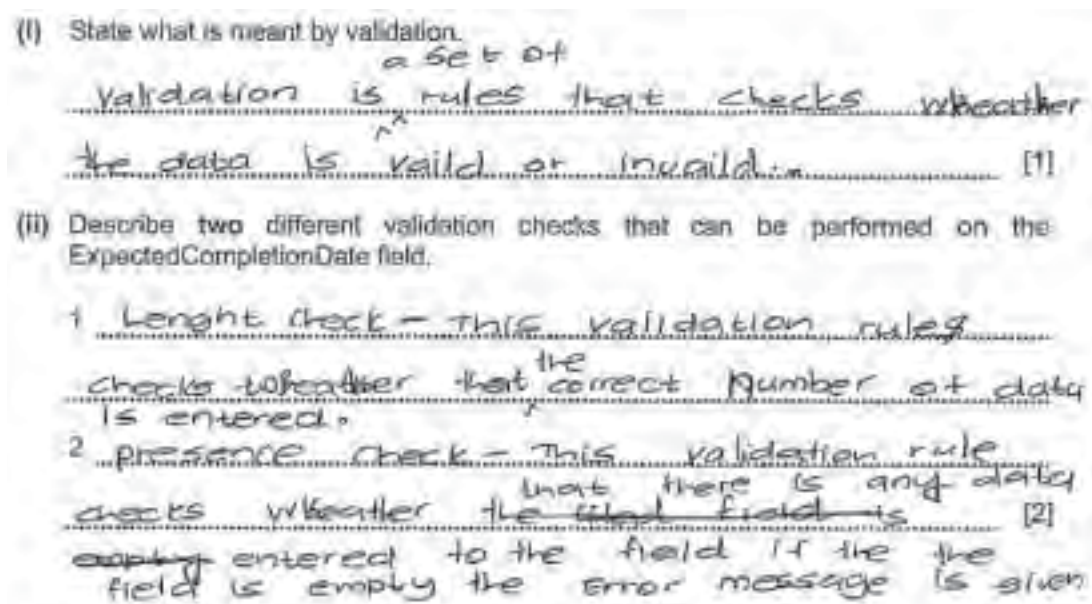 (i) State what is meant by validation.
a set of
Validation is rules that checks wheather
the data is vaild or invaild. [1]
(ii) Describe two different validation checks that can be performed on the
ExpectedCompletionDate field.
1 Lenght check - This validation rules
the
checks wheather that correct Number of data
is entered.
2 presence check - This validation rule
that there is any data
checks wheather the field is [2]
empty entered to the field if the the
field is empty the Error message is given